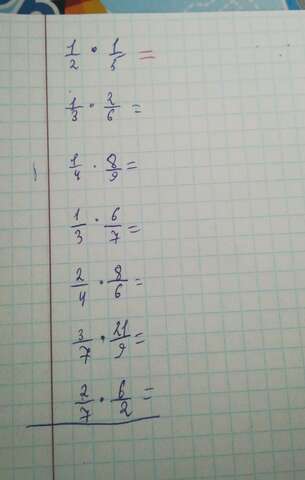 1/2 · 1/5 =
1/3 · 2/6 =
1/4 · 8/9 =
1/3 · 6/7 =
2/4 · 8/6 =
3/7 · 21/9 =
2/7 · 6/2 =